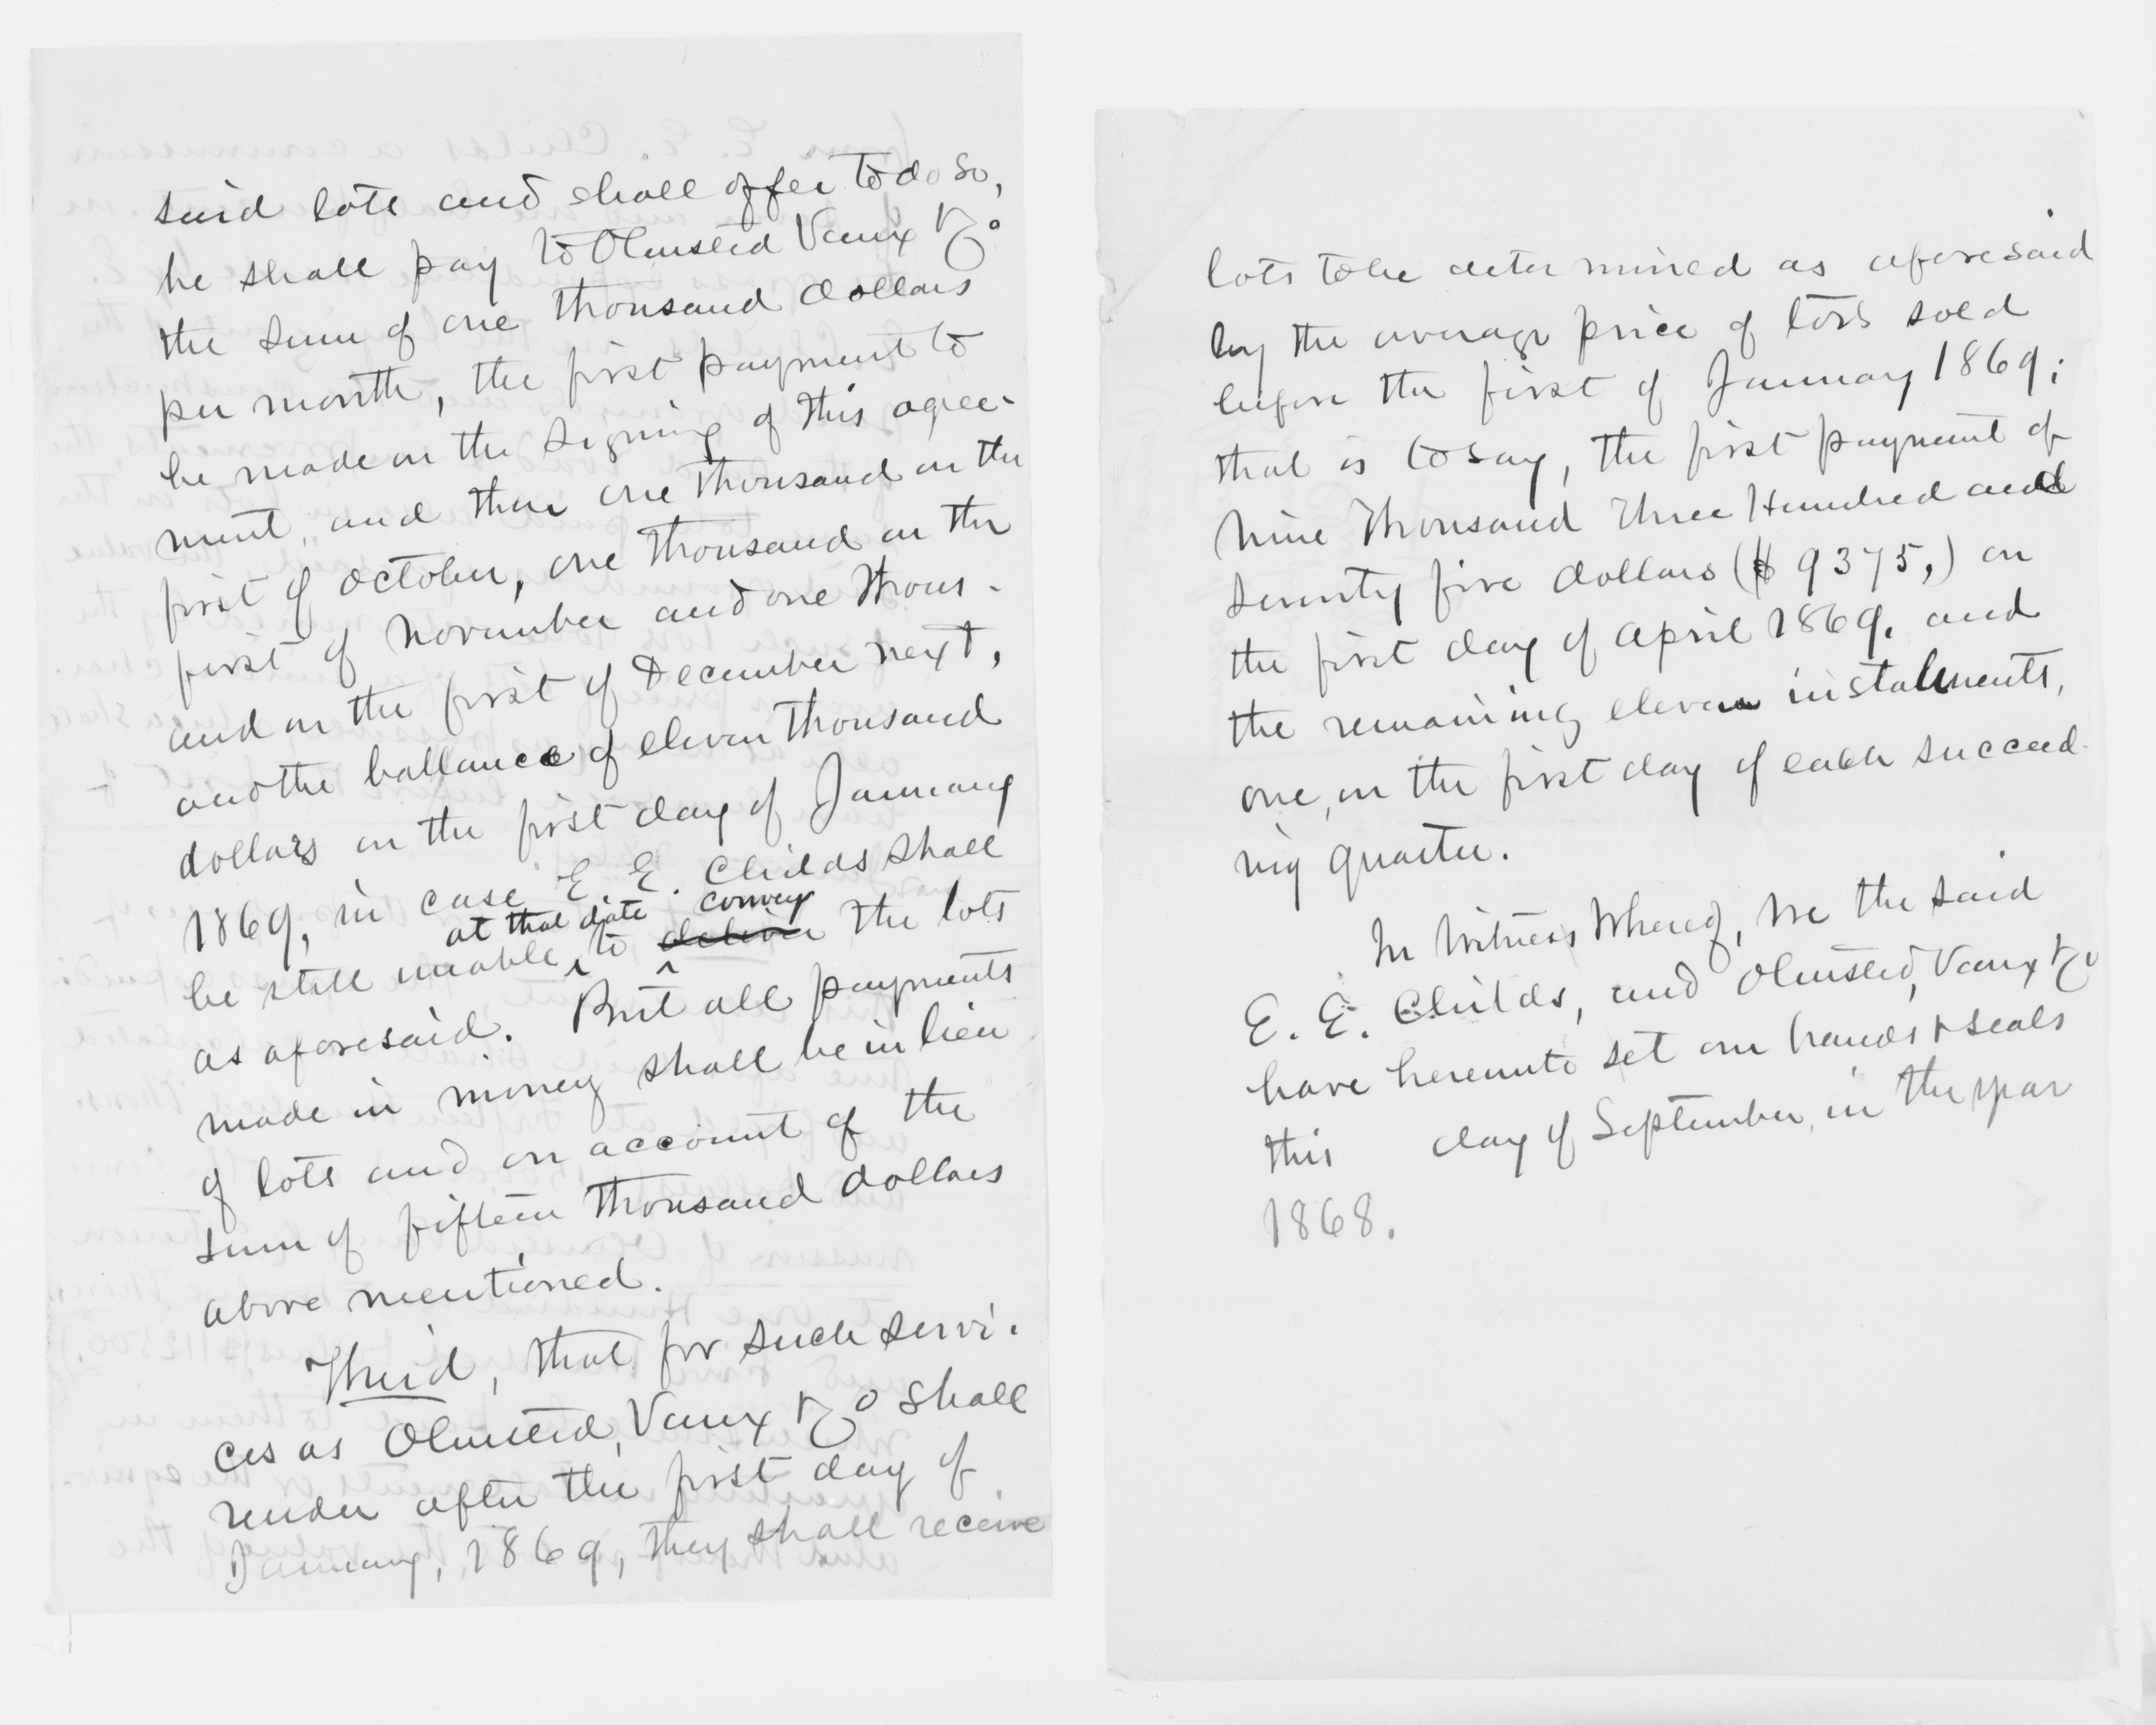 said lots and shall offer to do so,
he shall pay to Olmsted Vaux & Co
the sum of one thousand dollars
per month, the first payment to
be made on the signing of this agree-
ment, and then one thousand on the
first of October, one thousand on the
first of November and one thous-
and on the first of December next,
and the ballance of eleven thousand
dollars on the first day of January
1869, in case E. E. Childs shall
at that date convey
be still unable, to deliver the lots
as aforesaid. But all payments
made in money shall be in lieu
of lots and on account of the
sum of fifteen thousand dollars
above mentioned.
Third, that for such servi-
ces as Olmsted, Vaux & Co shall
render after the first day of
January, 1869, they shall receive
lots to be determined as aforesaid
by the average price of lots sold
before the first of January 1869;
that is to say, the first payment of
Nine Thousand Three Hundred and
Seventy five dollars ($9375,) on
the first day of April 1869. and
the remaining eleven instalments,
one, on the first day of each succeed-
ing quarter.
In Witness Whereof, We the said
E. E. Childs, and Olmsted, Vaux & Co
have hereunto set our hands & seals
this day of September, in the year
1868.